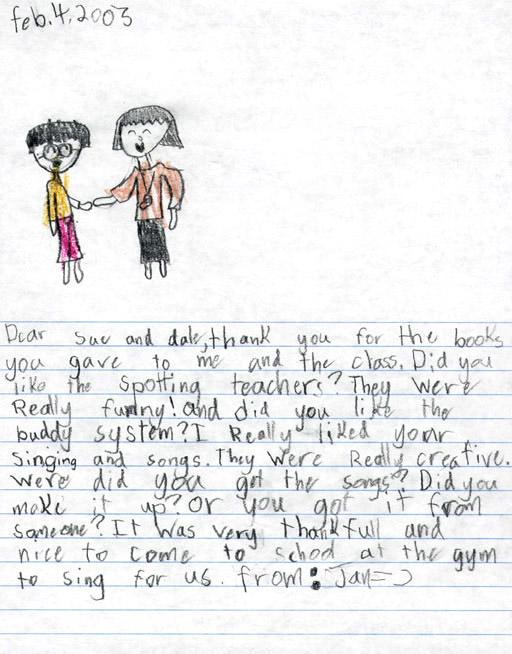 feb.4,2003
Dear sue and dale, thank you for the books
you gave to me and the class. Did you
like the spotting teachers? They were
Really funny! and did you like the
buddy system? I Really liked your
singing and songs. They were Really creative.
were did you get the songs? Did you
make it up? Or you got it from
someone? It was very thankfull and
nice to come to school at the gym
to sing for us. from: Jan=)